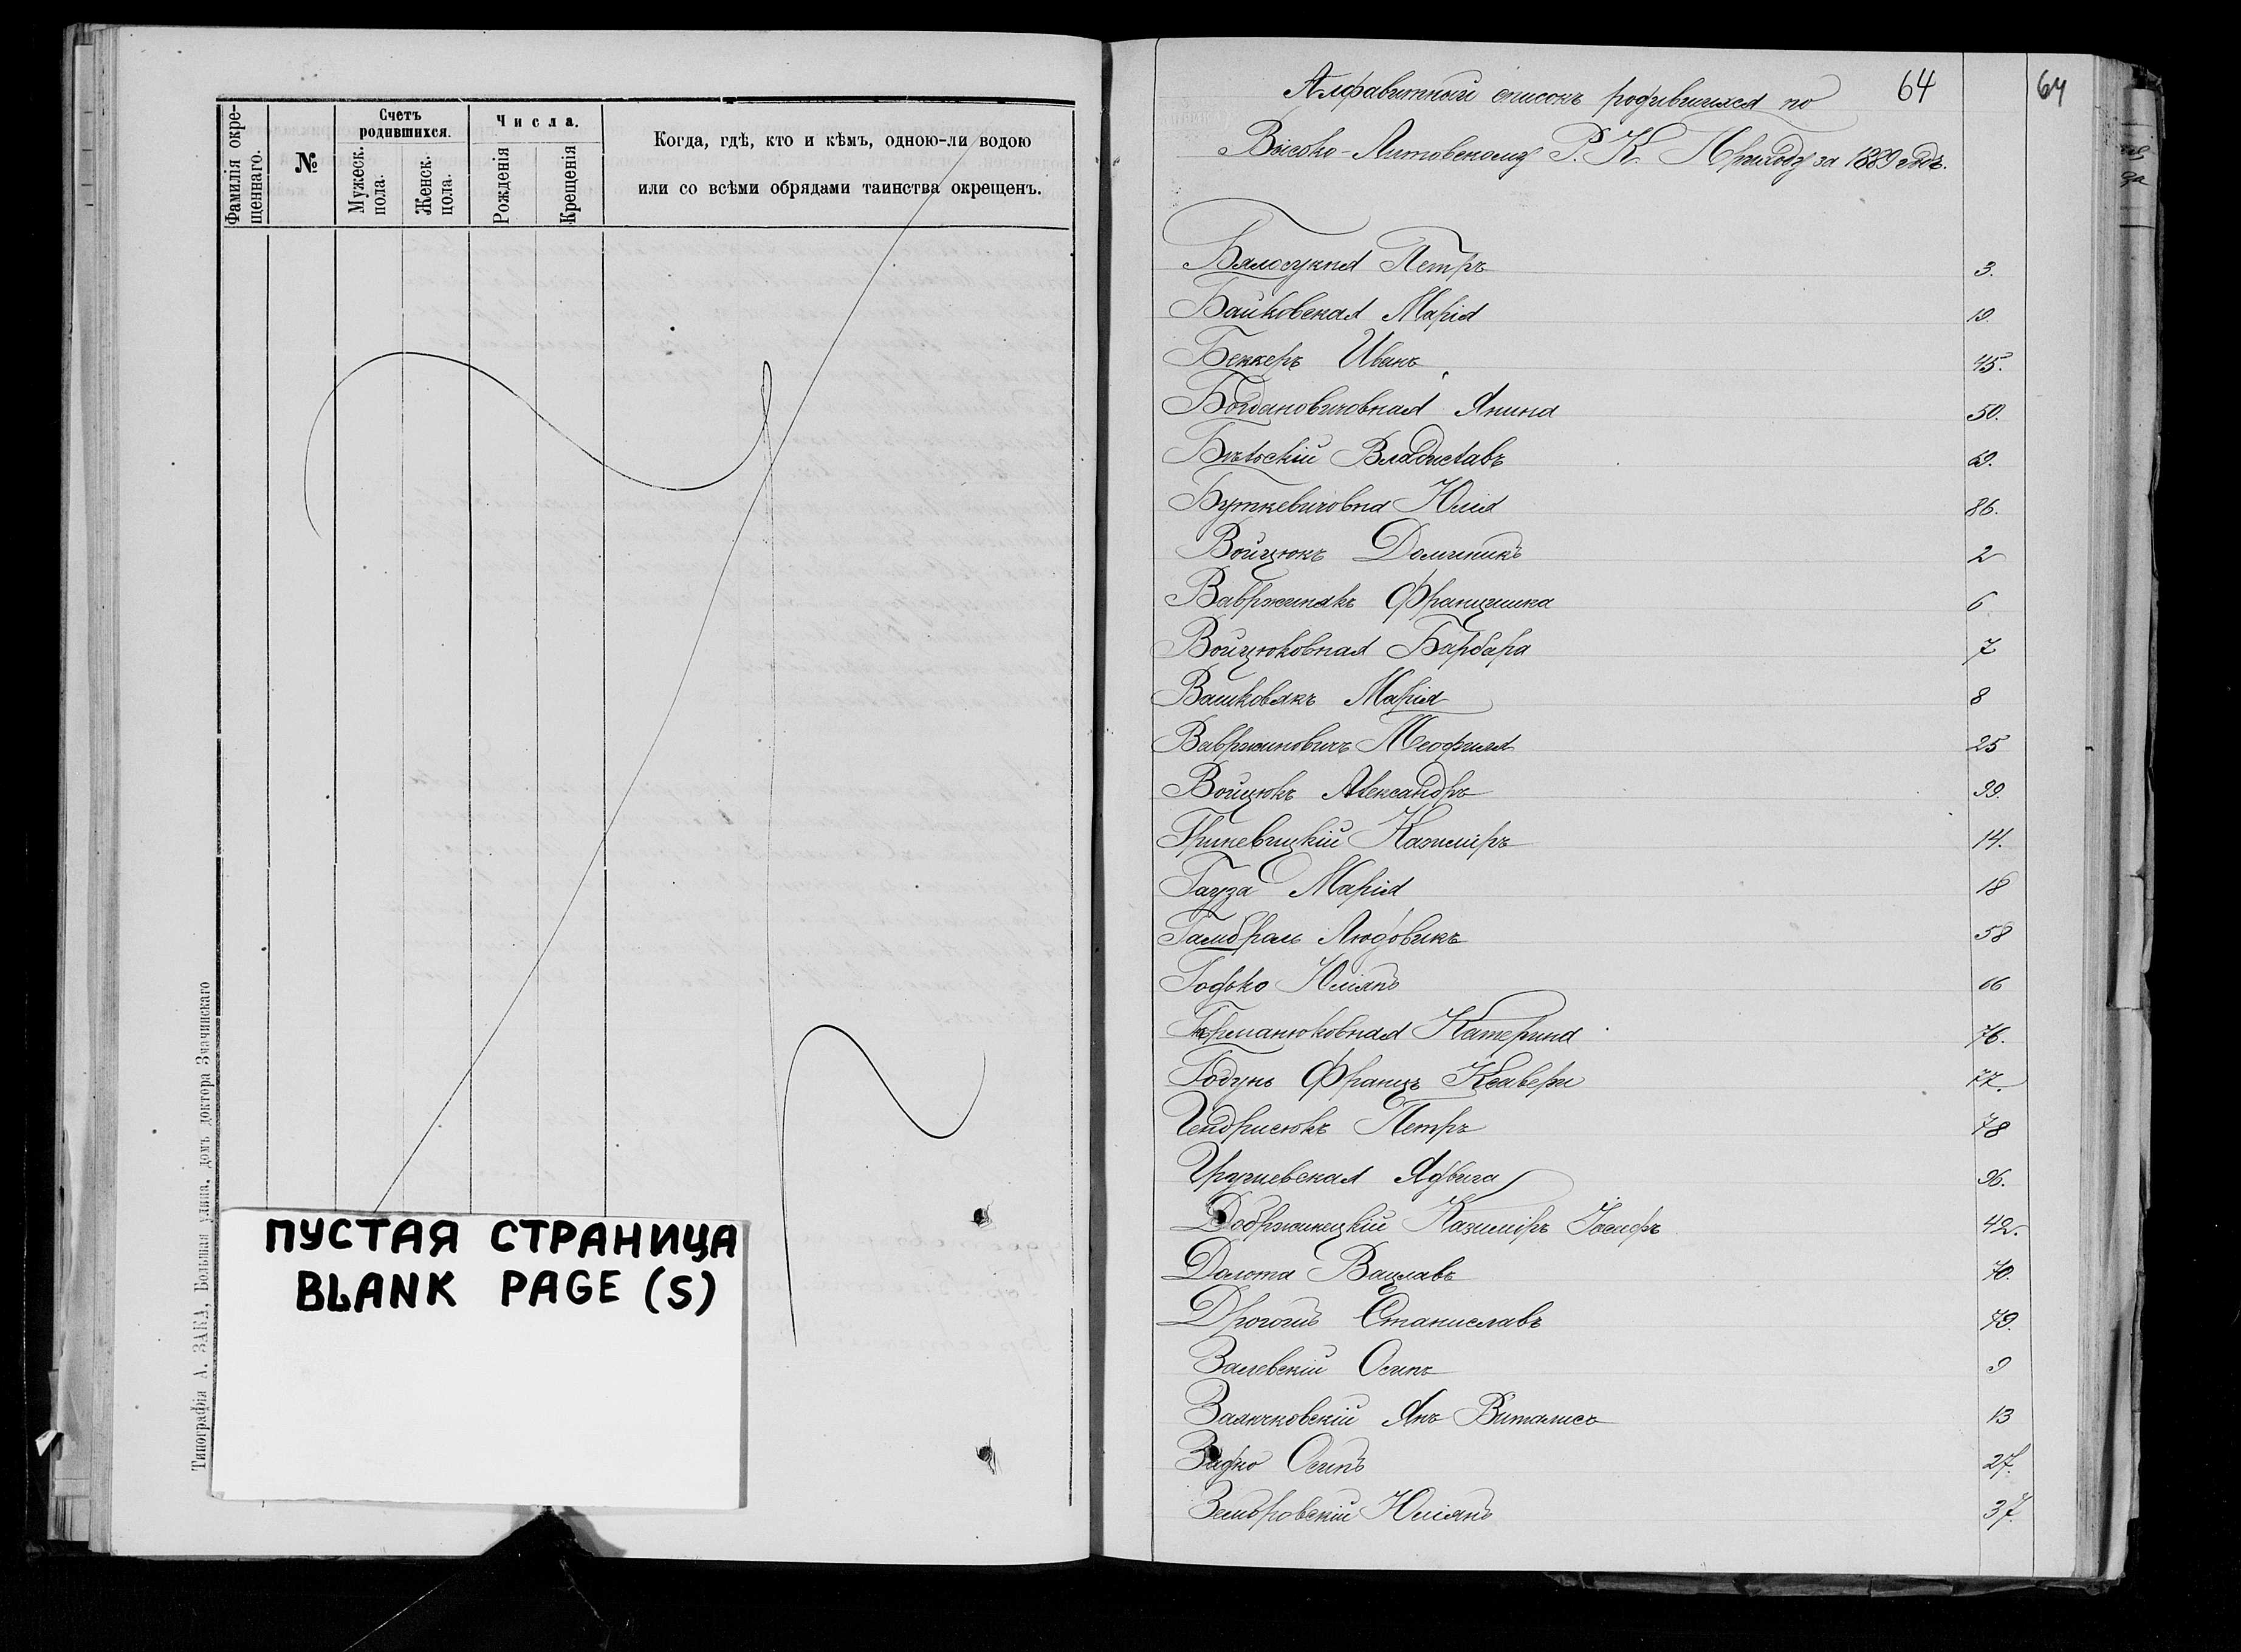 Фамилія окре-
щеннаго.
№
Счетъ
родившихся.
Мужеск.
пола.
Женск.
пола.
Числа.
Рожденія
Крещенія
Когда, гдѣ, кто и кѣмъ, одною-ли водою
или со всѣми обрядами таинства окрещенъ.
Типографія А. ЗАКА, Большая улица, домъ доктора Значинскаго
ПУСТАЯ СТРАНИЦА
BLANK PAGE (S)
64
64
Алфавитный списокъ родившихся по
Высоко-Литовскому Р. К. Приходу за 1889 годъ.
Бялосукня Петръ 3.
Байковская Марія 19.
Беккеръ Иванъ 45.
Богдановичовная Янина 50.
Владиславъ 69.
Буткевичовна Юлія 86.
Войцюкъ Доминикъ 2
Вавржинякъ Францишка 6
Войцюковная Барбара 7
Вашковякъ Марія 8
Вавржиновичъ Теофиля 25
Войцюкъ Александръ 99.
Гриневицкій Казиміръ 14.
Гауза Марія 18
Людовикъ 58
Годько Юліянъ 66
Германюковная Катерина 76.
Годунь Францъ Ксавери 77.
Гендрисюкъ Петръ 78
Ядвига 96.
Добржинецкій Казиміръ Іосифъ 42.
Долота Вацлавъ 70.
Станиславъ 79.
Залевскій Осипъ 9
Заянчковскій Янъ Виталисъ 13
Осипъ 27.
Земbровскій Юліянъ 37.